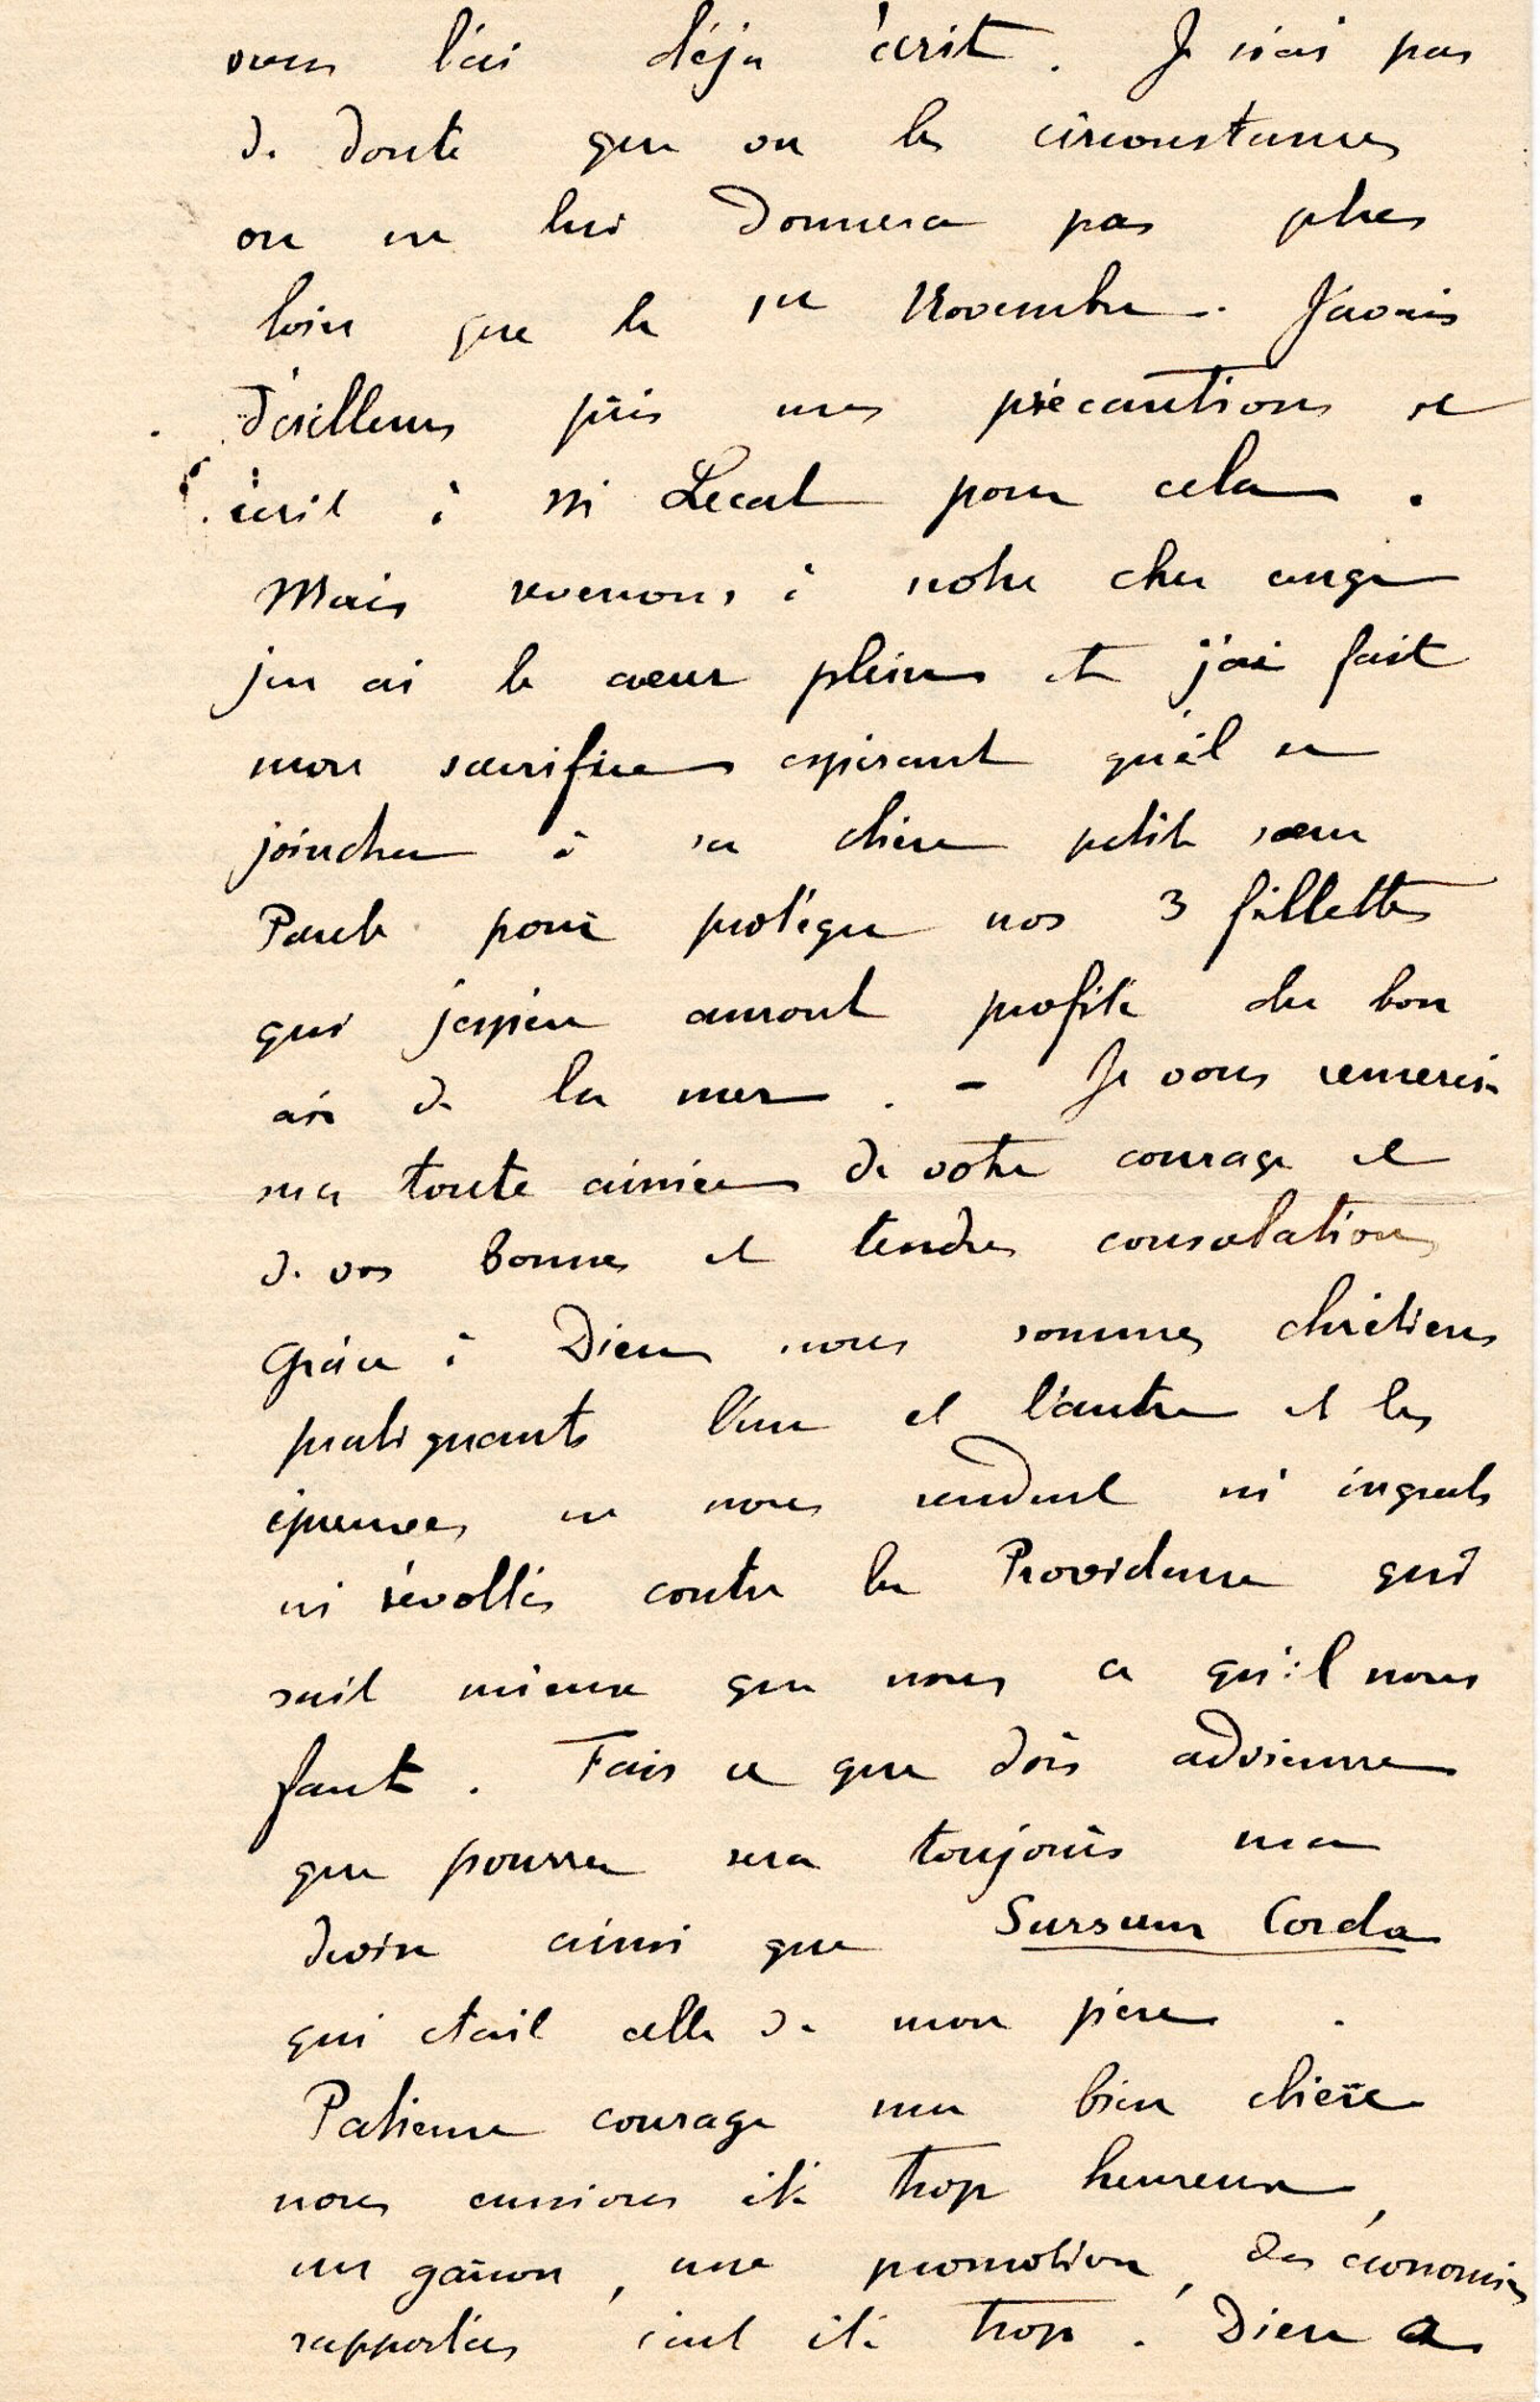 vous l'ai déjà écrit. Je n'ai pas
de doute que vu les circonstances
on ne lui donnera pas plus
loin que le 1er Novembre. J'avais
d'ailleurs pris mes précautions et
écrit à Mr Lecat pour cela.
Mais revenons à notre cher ange
j'en ai le cœur plein et j'ai fait
mon sacrifice espérant qu'il se
joindra à sa chère petite sœur
Paule pour protéger nos 3 fillettes
qui j'espère auront profité du bon
air de la mer. - Je vous remercie
ma toute aimée de votre courage et
de vos bonnes et tendres consolations
Grâce à Dieu nous sommes chrétiens
pratiquants l'un et l'autre et les
épreuves ne nous rendent ni ingrats
ni révoltés contre la Providence qui
sait mieux que nous ce qu'il nous
faut. Fais ce que dois advienne
que pourra sera toujours ma
devise ainsi que Sursum Corda
qui était celle de mon père.
Patience courage ma bien chère
nous eussions été trop heureux,
un garçon, une promotion, des économies
rapportées c'eut été trop. Dieu a